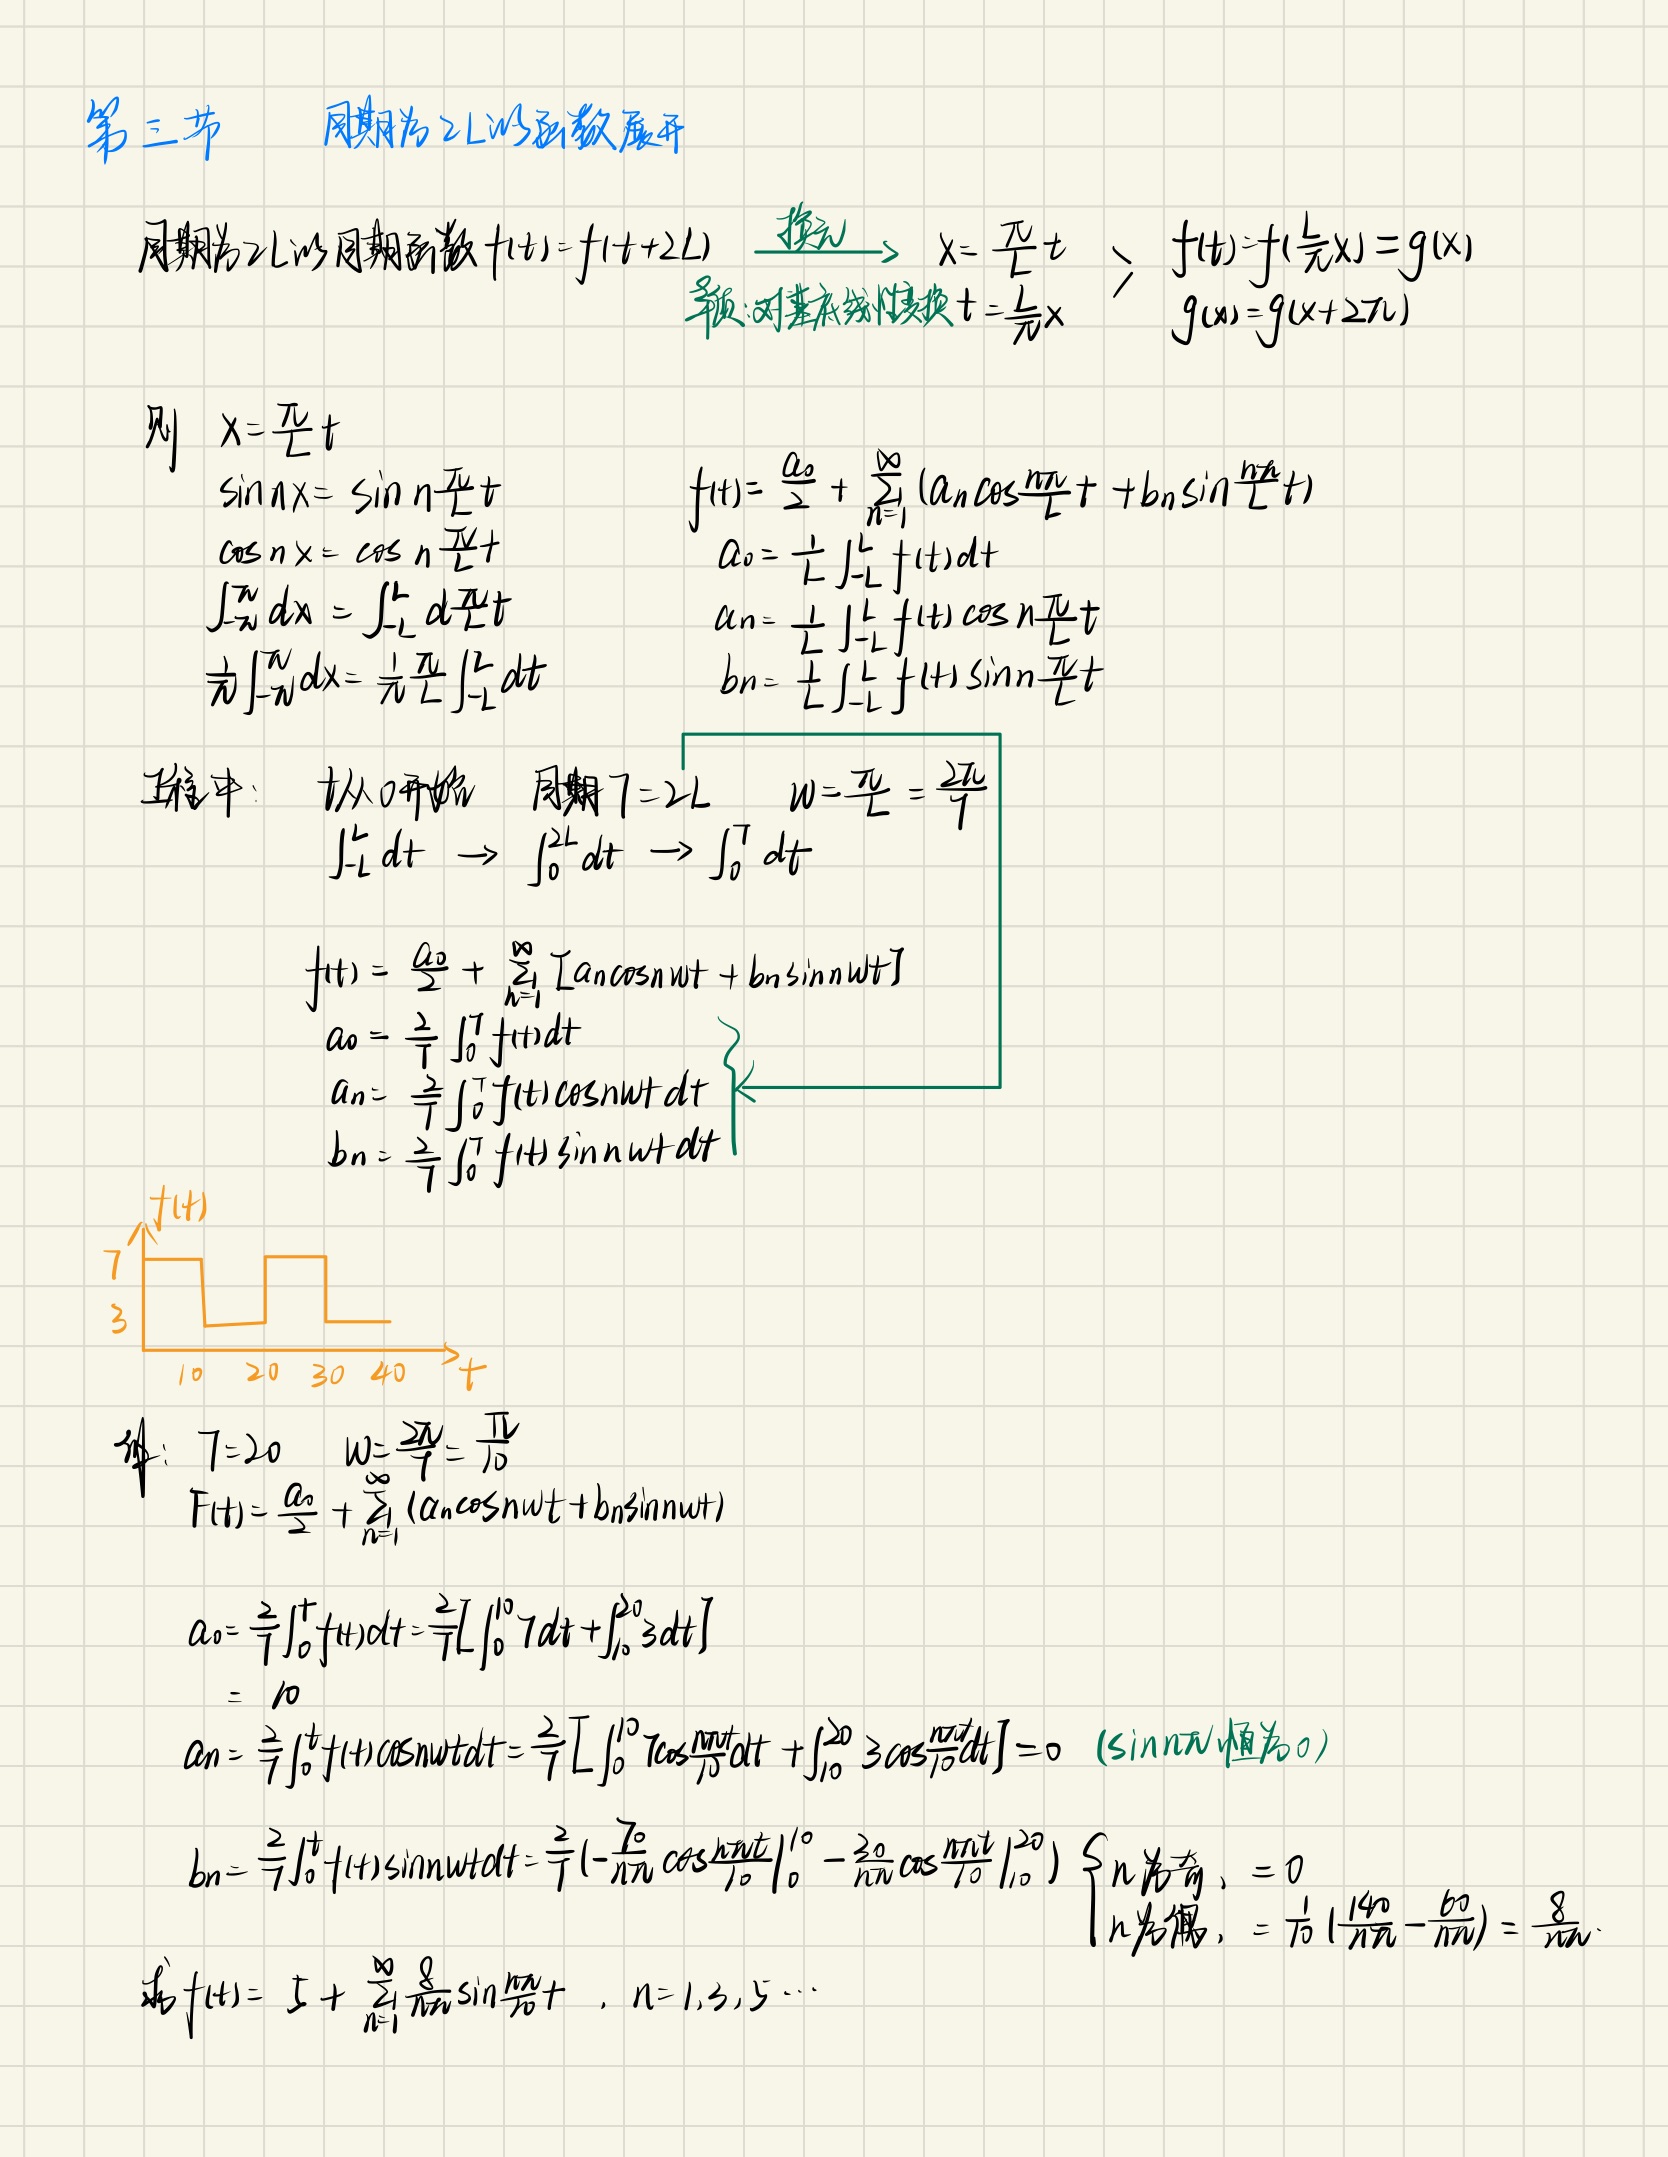 第三节 周期为2L的函数展开
周期为2L的周期函数 f(t)=f(t+2L) 换元 x=π/L t f(t)=f(L/π x)=g(x)
对基底线性变换 t=L/π x g(x)=g(x+2π)
则 x=π/L t
sin nx = sin n π/L t f(t)=a₀/2 + ∑_{n=1}^{∞} (aₙcos nπ/L t + bₙ sin nπ/L t)
cos nx = cos n π/L t a₀ = 1/L ∫_{-L}^{L} f(t)dt
∫_{-π}^{π} dx = ∫_{-L}^{L} d π/L t aₙ = 1/L ∫_{-L}^{L} f(t) cos n π/L t
1/π ∫_{-π}^{π} dx = 1/π π/L ∫_{-L}^{L} dt bₙ = 1/L ∫_{-L}^{L} f(t) sin n π/L t
工程中: t从0开始 周期T=2L w=π/L=2π/T
∫_{-L}^{L} dt → ∫_{0}^{2L} dt → ∫_{0}^{T} dt
f(t) = a₀/2 + ∑_{n=1}^{∞} [aₙcosnwt + bₙsinnwt]
a₀ = 2/T ∫_{0}^{T} f(t)dt
aₙ = 2/T ∫_{0}^{T} f(t)cosnwt dt
bₙ = 2/T ∫_{0}^{T} f(t) sinnwt dt
f(t)
7
3
10 20 30 40 t
解: T=20 w=2π/T=π/10
F(t)=a₀/2 + ∑_{n=1}^{∞} (aₙcosnwt+bₙsinnwt)
a₀=2/T ∫_{0}^{t} f(t)dt=2/T[∫_{0}^{10} 7dt+∫_{10}^{20} 3dt]
= 10
aₙ = 2/T ∫_{0}^{t} f(t)cosnwtdt=2/T [∫_{0}^{10} 7cos nπt/10 dt + ∫_{10}^{20} 3cos nπt/10 dt]=0 (sinnπ恒为0)
bₙ=2/T ∫_{0}^{t} f(t)sinnwtdt=2/T (-70/nπ cos nπt/10 |_{0}^{10} - 30/nπ cos nπt/10 |_{10}^{20}) { n为奇, =0
n为偶, = 1/10 (140/nπ - 60/nπ) = 8/nπ.
f(t)= 5 + ∑_{n=1}^{∞} 8/nπ sin nπ/10 t , n=1,3,5…